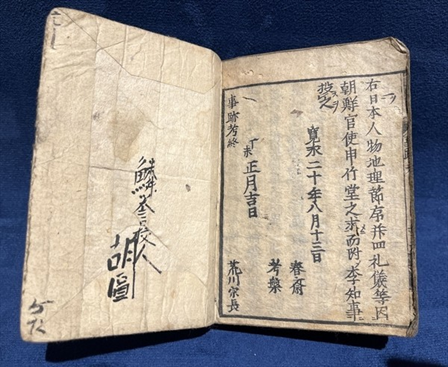 右日本人物地理節序并四礼儀等因
朝鮮官使申竹堂之求而附李知事
投之
寛永二十年八月十三日
春斎
考槃
丁未正月吉日
事跡考終 荒川宗長